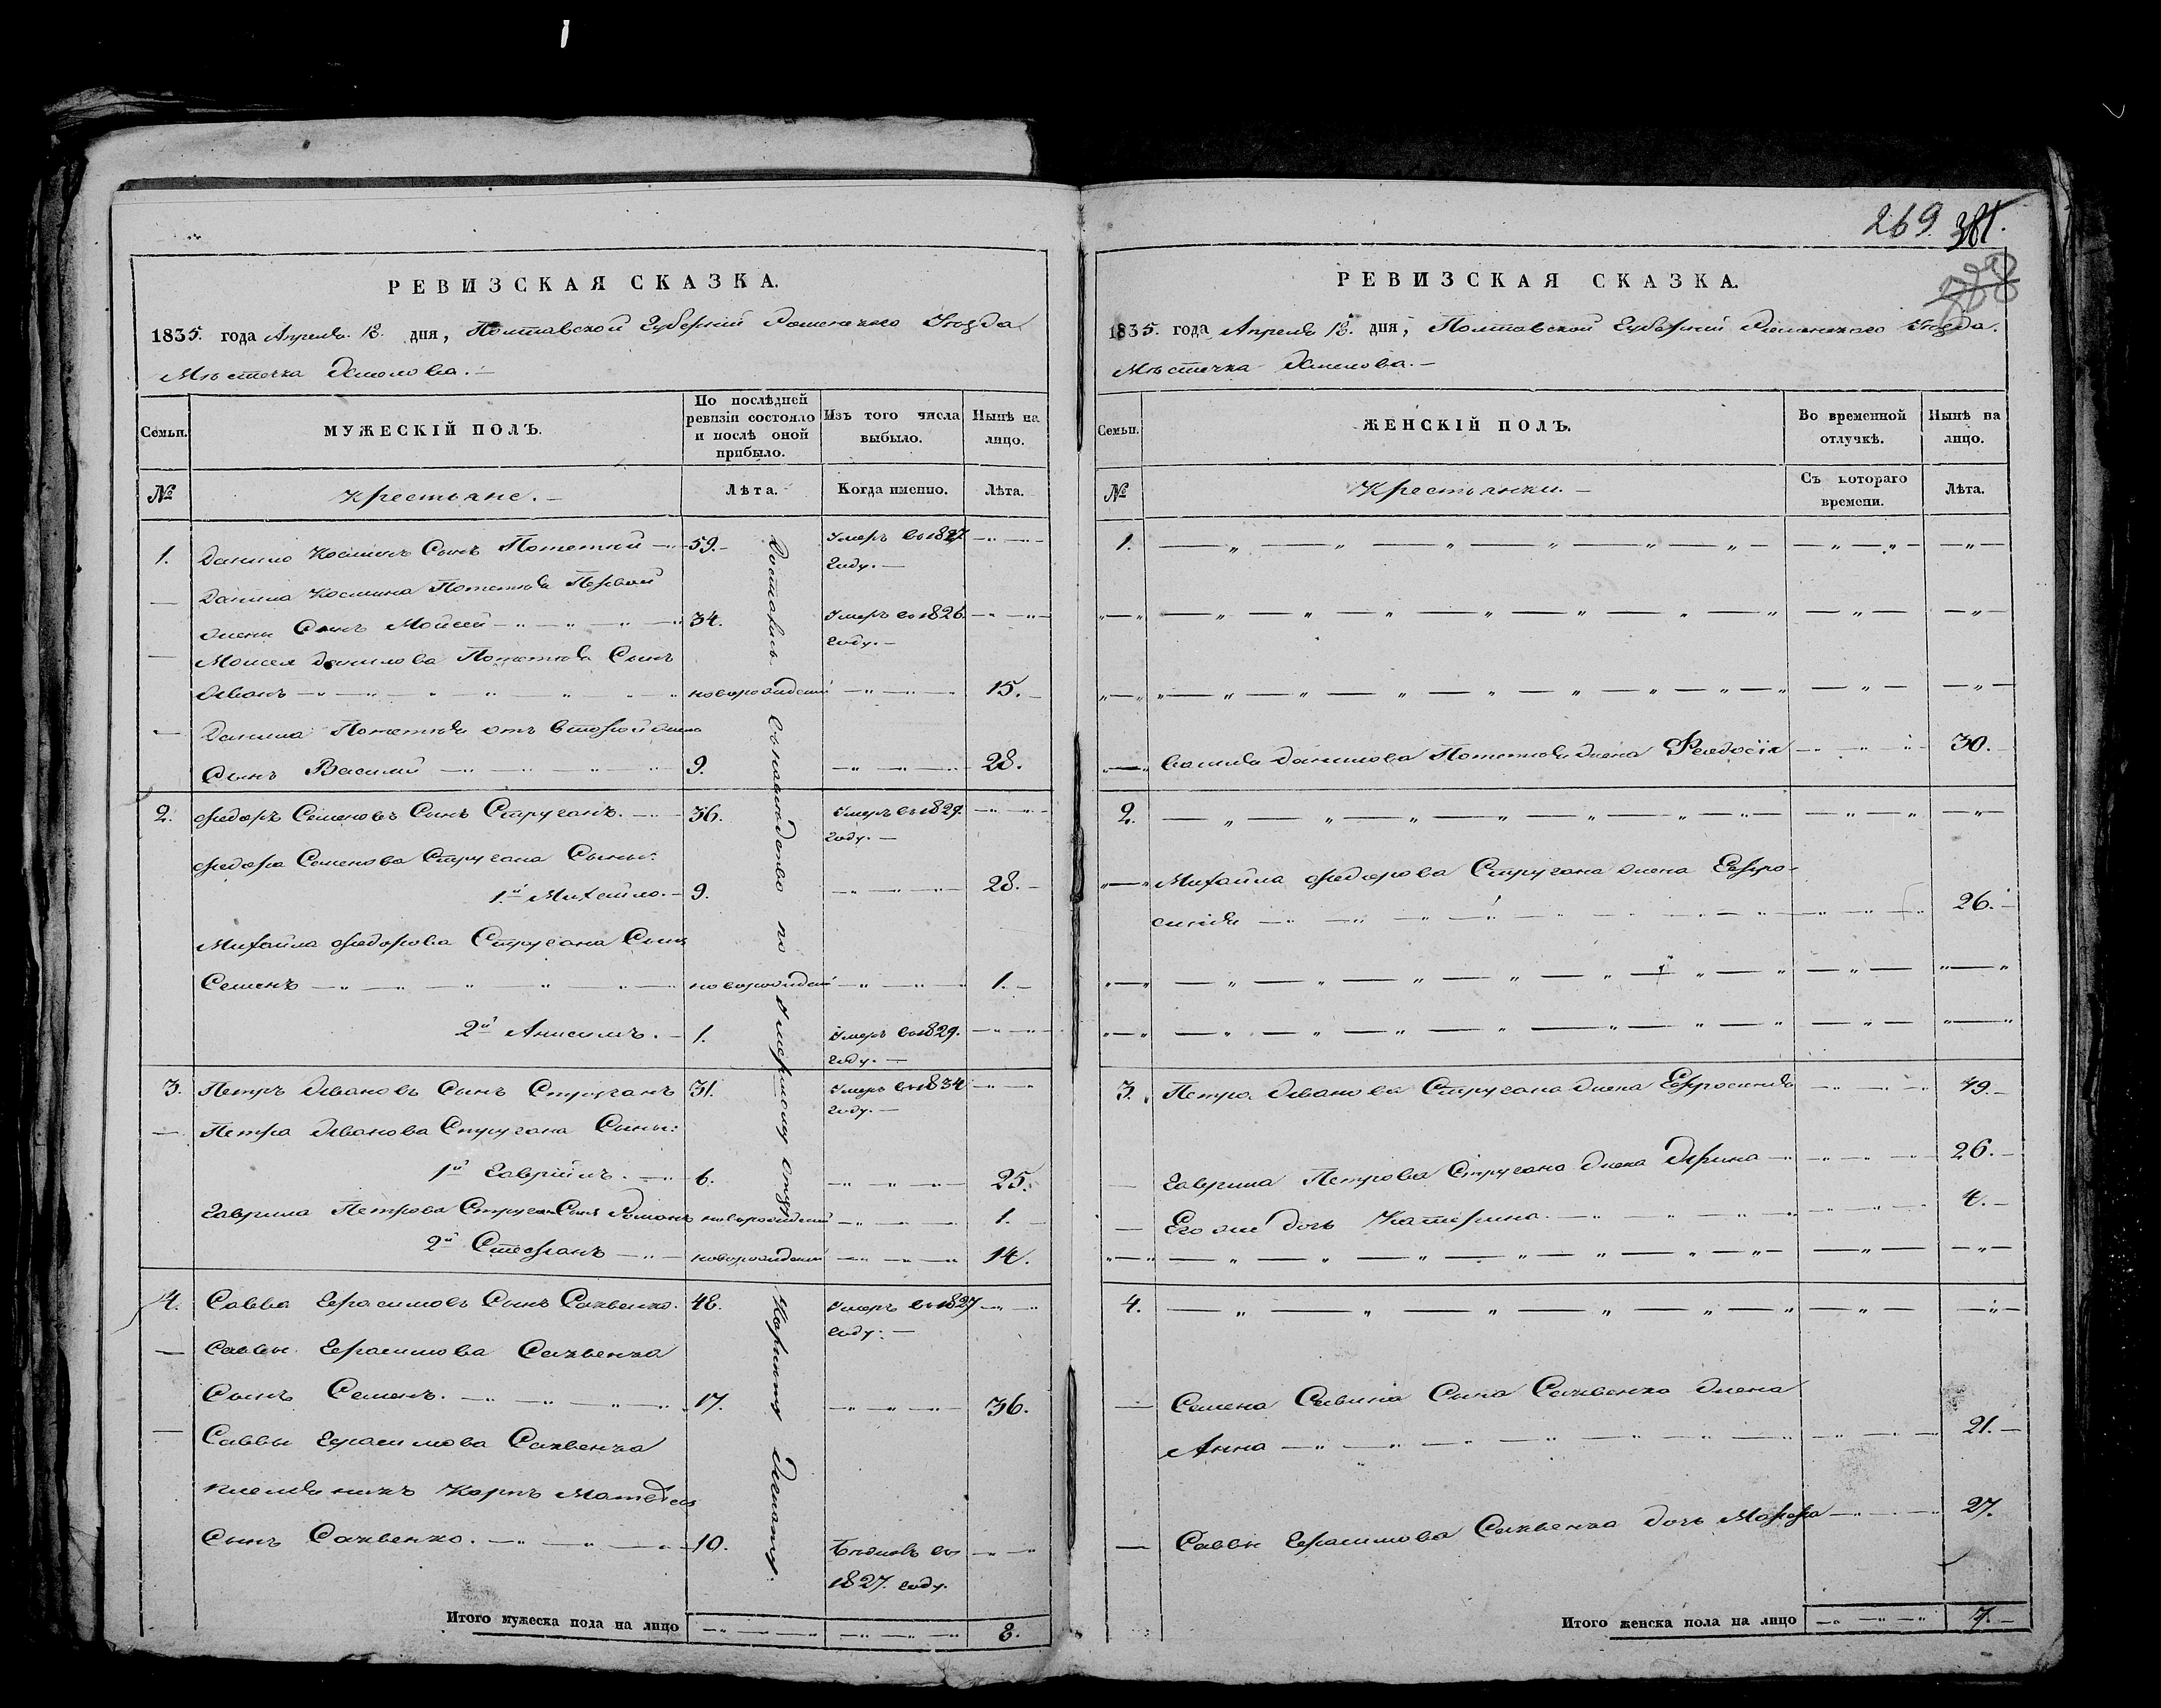 РЕВИЗСКАЯ СКАЗКА.
1835. года Апреля 18. дня, Полтавской Губерніи Роменского Уезда
Местечка Хмелова.—
Семьи.
МУЖЕСКІЙ ПОЛЪ.
По последней ревизіи состояло и после оной прибыло.
Изъ того числа выбыло.
Ныне на лицо.
№
Крестьяне.—
Лѣта.
Когда именно.
Лѣта.
1. Данило Косминъ Сынъ 59. Умеръ въ 1827 году.—
Данила Космина Первой
жены Сынъ Мойсей 34. Умеръ въ 1826. году.—
Моисея Данилова Сынъ
Иванъ новорожденный 15.
Данила отъ второй жены
Сынъ Василій 9. 28.
2. Федоръ Семеновъ Сынъ Стругань. 36. Умеръ въ 1829. году.—
Федора Семенова Стругана Сыны:
1й Михайло.— 9. 28.
Михайла Федорова Стругана Сынъ
Семенъ новорожденный 1.
2й Анисимъ. 1. Умеръ въ 1829. году.—
3. Петръ Ивановъ Сынъ Струганъ 31. Умеръ въ 1834 году.—
Петра Иванова Стругана Сыны:
1й Гавріилъ. 6. 25.
Гаврила Петрова Струган Сынъ Романъ новорожденный 1.
2й Стефанъ новорожденный 14.
4. Савва Герасимовъ Сынъ Сахвенко. 48. Умеръ въ 1827 году.—
Саввы Герасимова Сахвенка
Сынъ Семенъ. 17. 36.
Саввы Герасимова Сахвенка
племянникъ Карпъ
Сынъ Сахвенко. 10. въ 1827. году.
Достались въ наследство по Умершему отцу
Итого мужеска пола на лицо 8.
269 381.
РЕВИЗСКАЯ СКАЗКА.
1835. года Апреля 18. дня, Полтавской Губерніи Роменского Уезда.
Местечка Хмелова.—
Семьи.
ЖЕНСКІЙ ПОЛЪ.
Во временной отлучкѣ.
Нынѣ на лицо.
№
Крестьянки.—
Съ котораго времени.
Лѣта.
1.
Василя Данилова жена Феодосія 30.
2.
Михайла Федорова Стругана жена Ефро-
синія 26.
3. Петра Иванова Стругана жена Ефросинія 49.
Гаврила Петрова Стругана жена Ирина 26.
Его же дочь Катерина. 4.
4.
Семена Савина Сына Сахвенка жена
Анна 21.
Саввы Герасимова Сахвенка дочь Марфа 27.
Итого женска пола на лицо 7.